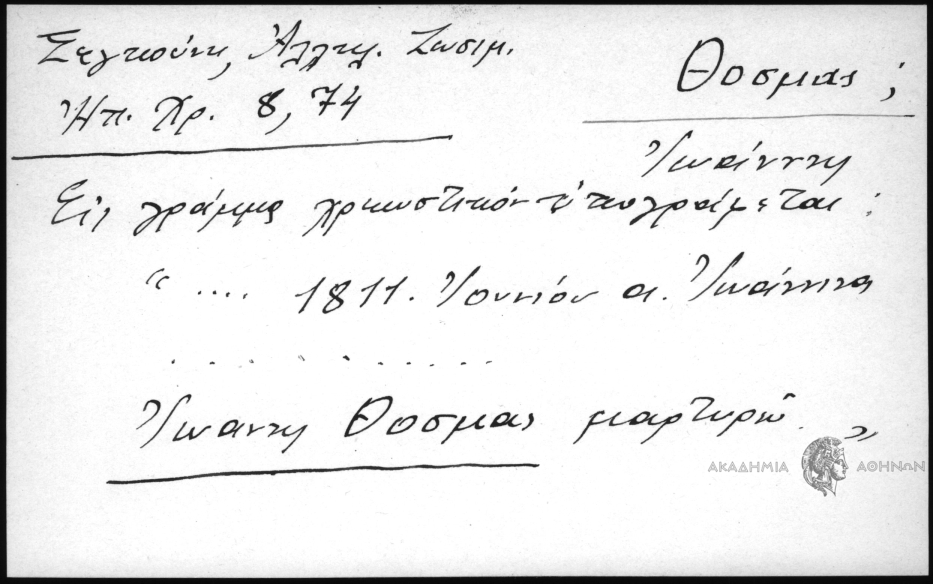 Σεγκούνη, Ἀλληλ. Ζωσιμ.
Ἠπ. Χρ. 8, 74
Θοσμας ;
Ἰωάννης
Εἰς γράμμα χρεωστικόν ὑπογράφεται :
“ .... 1811. Ἰουνίου α. Ἰωάννινα
. . . . . . . . . .
Ἰωάννης Θοσμας μαρτυρῶ. ”
ΑΚΑΔΗΜΙΑ ΑΘΗΝΩΝ